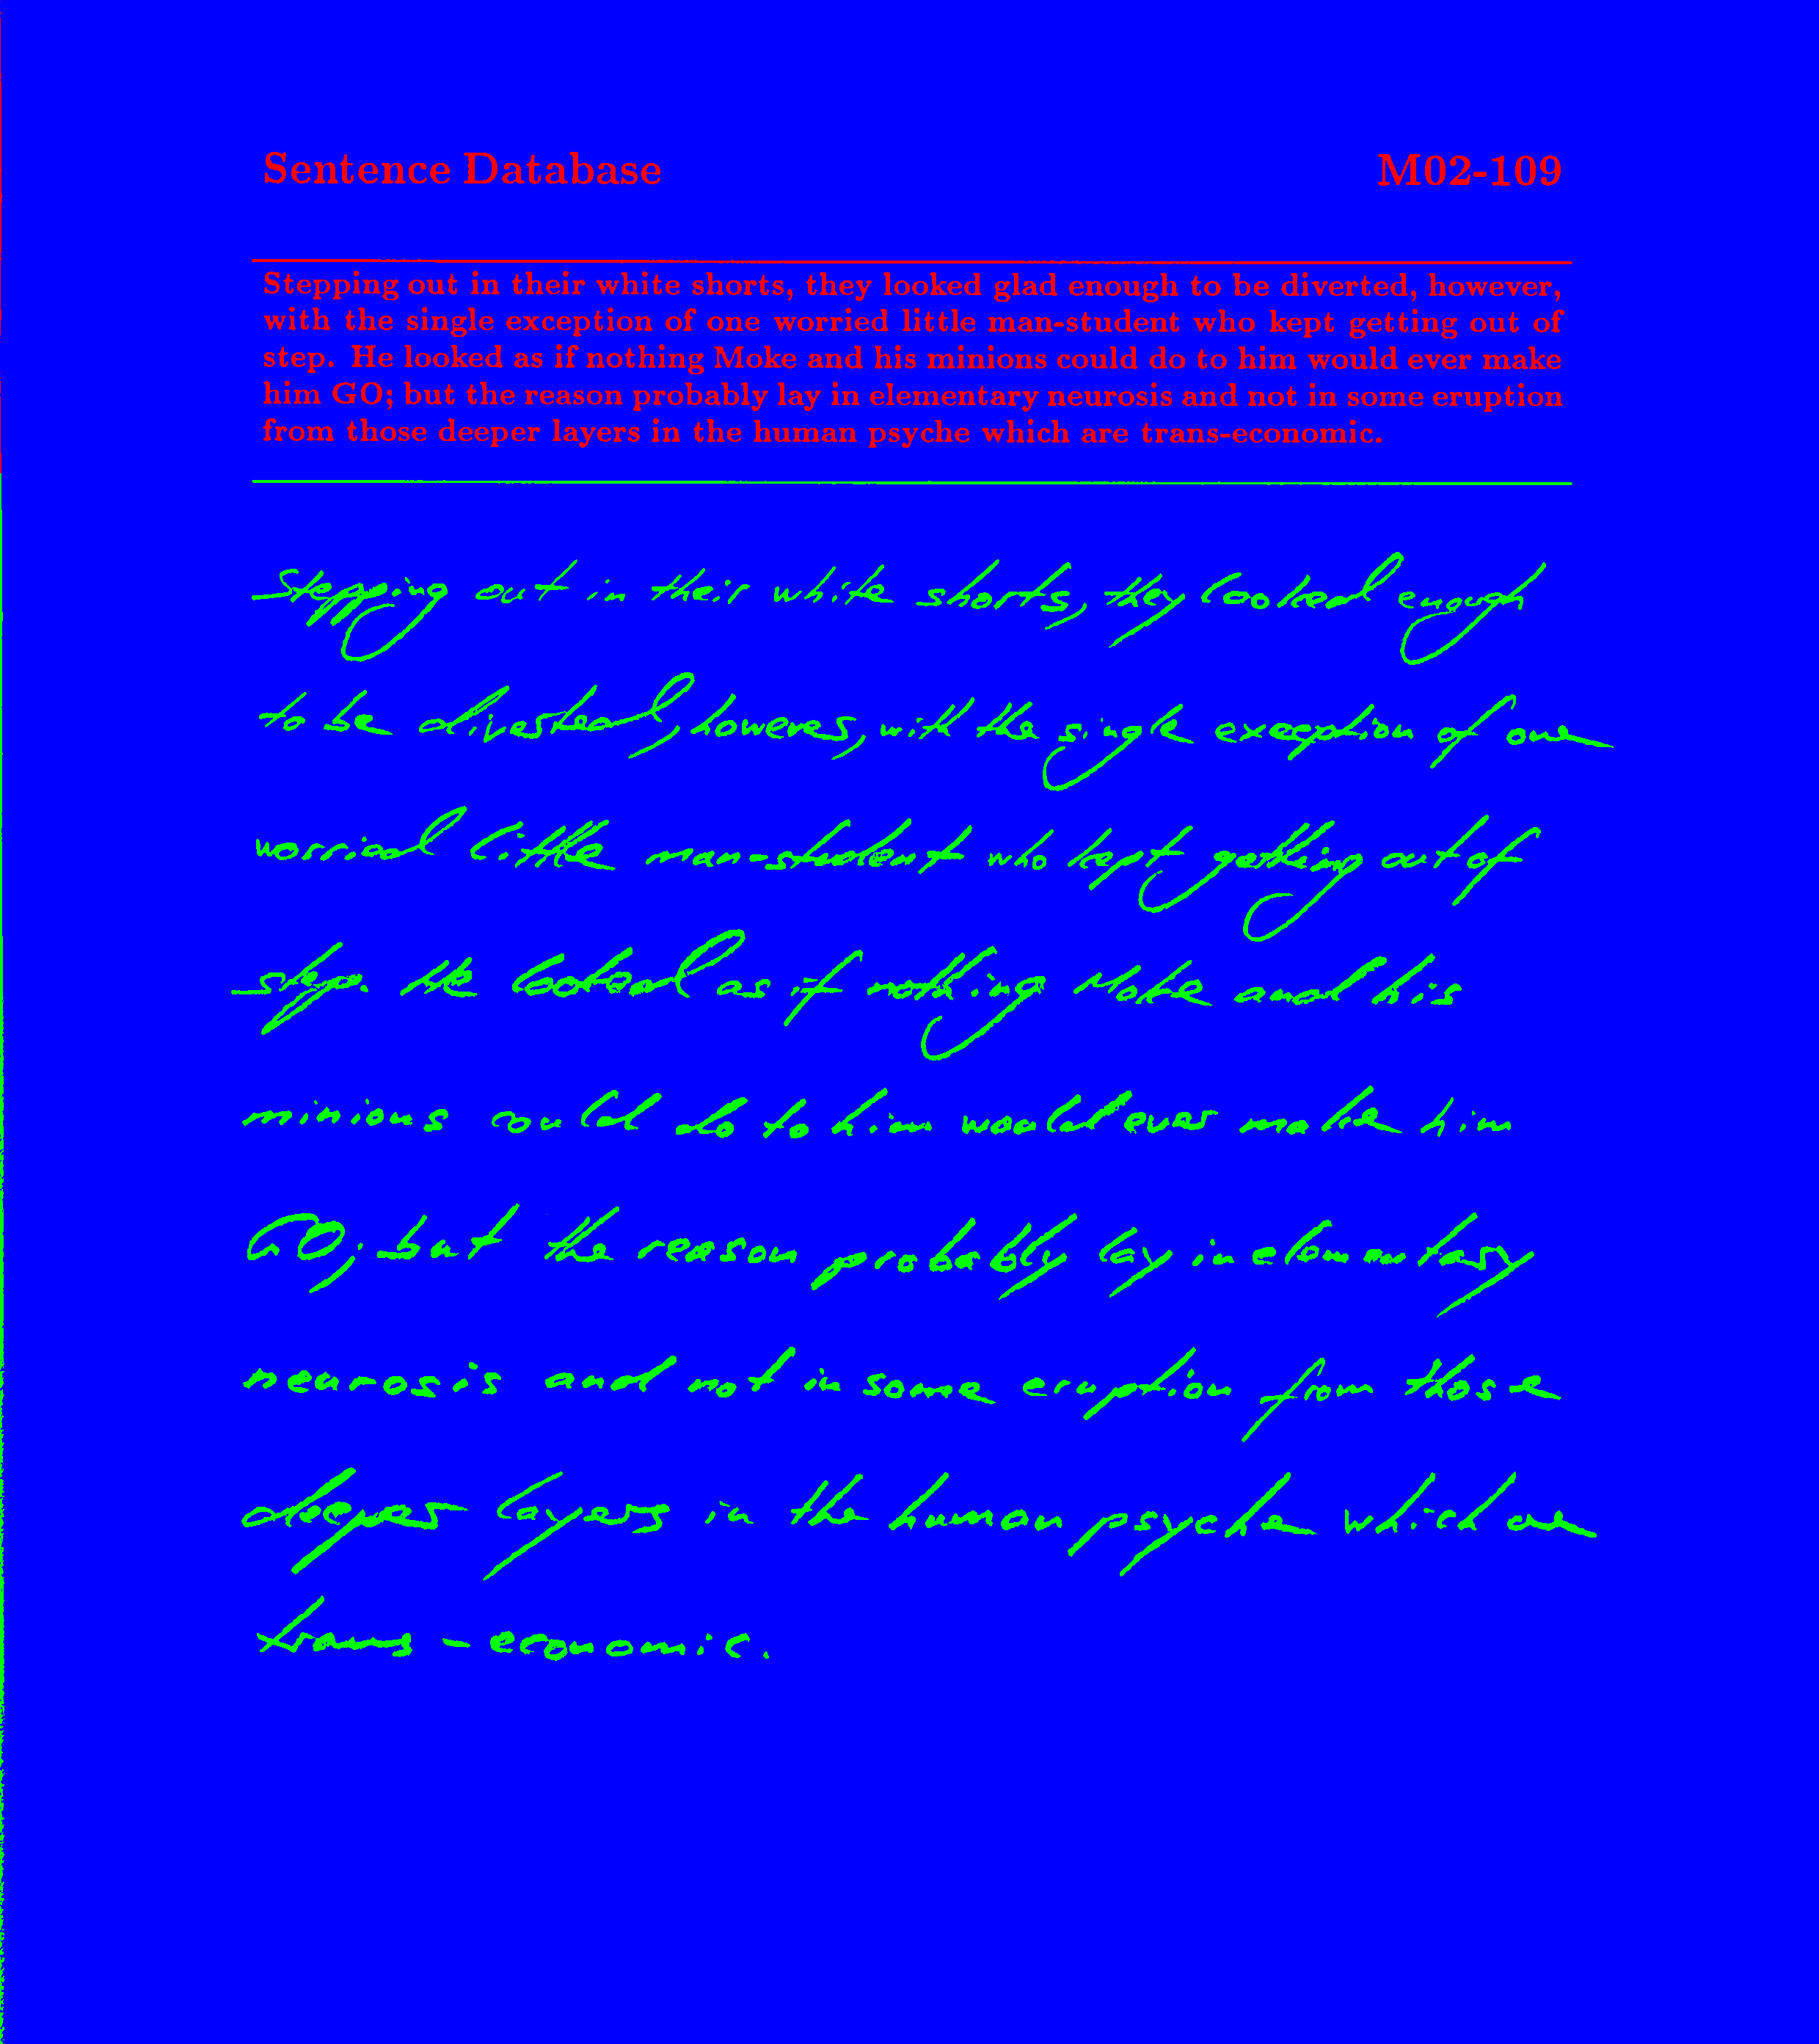 Sentence Database M02-109
Stepping out in their white shorts, they looked glad enough to be diverted, however,
with the single exception of one worried little man-student who kept getting out of
step. He looked as if nothing Moke and his minions could do to him would ever make
him GO; but the reason probably lay in elementary neurosis and not in some eruption
from those deeper layers in the human psyche which are trans-economic.
Stepping out in their white shorts, they looked enough
to be diverted, however, with the single exception of one
worried little man-student who kept getting out of
step. He looked as if nothing Moke and his
minions could do to him would ever make him
GO; but the reason probably lay in elementary
neurosis and not in some eruption from those
deeper layers in the human psyche which are
trans-economic.